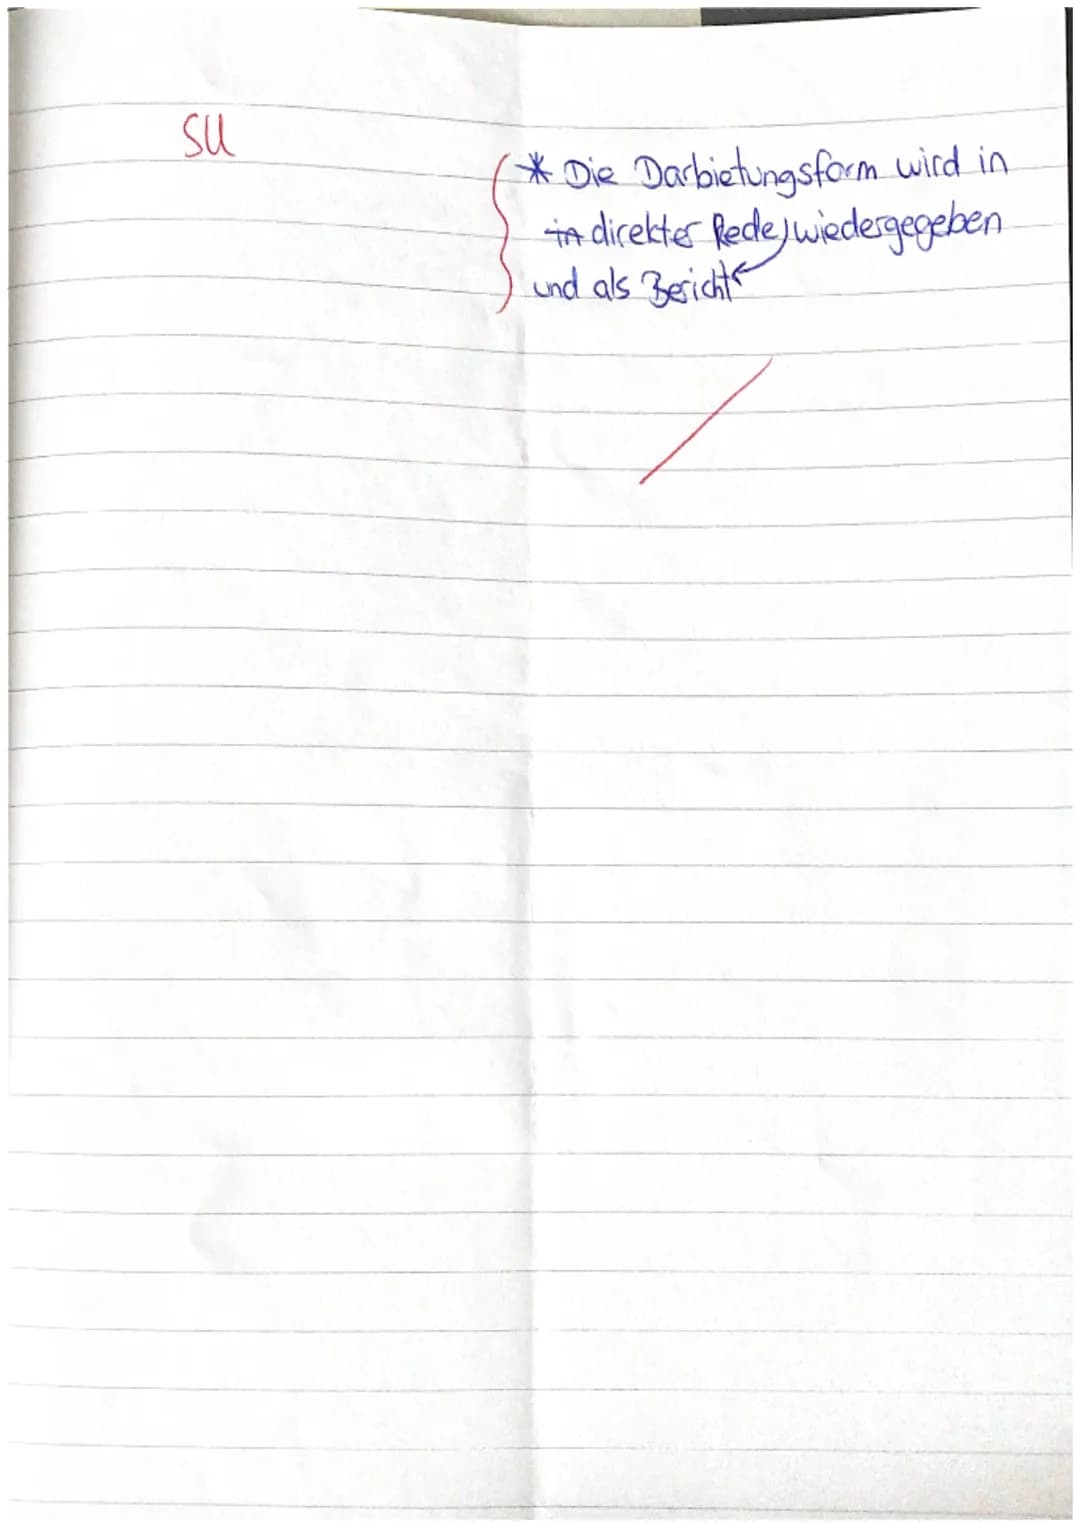 SU
* Die Darbietungsform wird in
in direkter Rede, wiedergegeben
und als Bericht